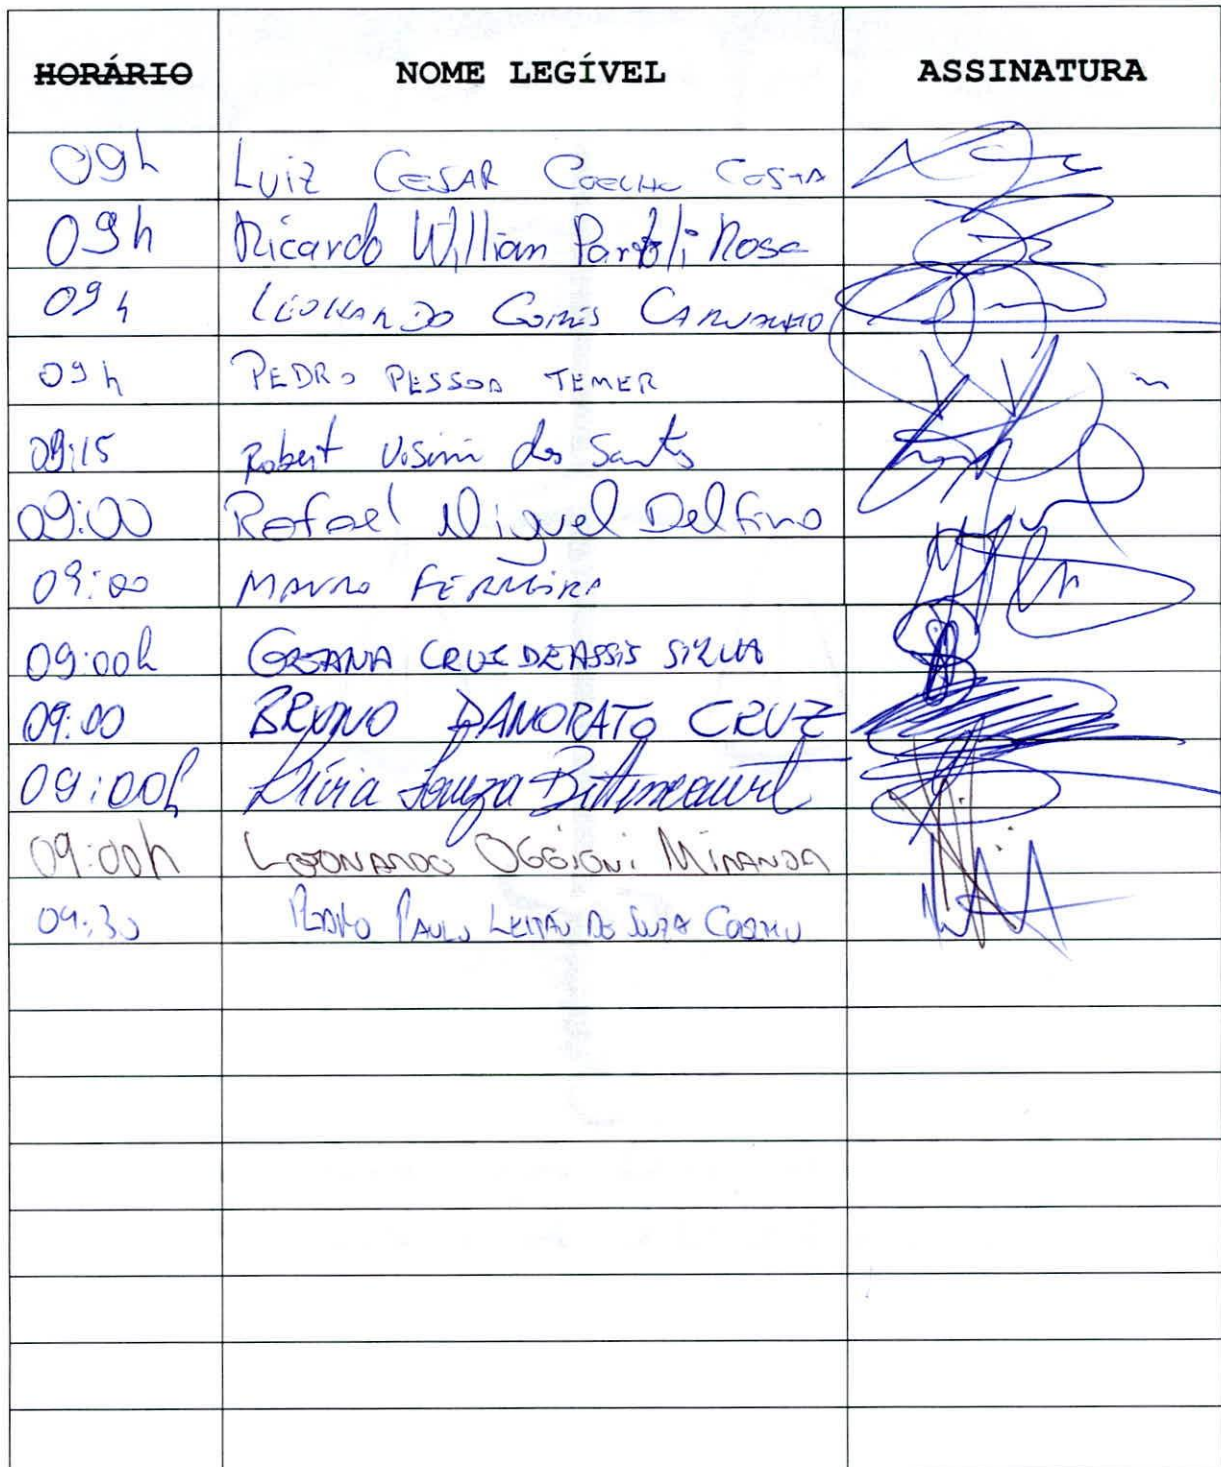 HORÁRIO NOME LEGÍVEL ASSINATURA
09h Luiz CESAR COELHO COSTA
09h Ricardo Willian Rosa
09h LEONARDO GOMES CARVALHO
09h PEDRO PESSOA TEMER
09:15 Robert Visini dos Santos
09:00 Rafael Miguel Delfino
09:00 MAURO FERREIRA
09:00h CRUZ DE ASSIS SILVA
09:00 BRUNO DANORATO CRUZ
09:00h Lívia Souza Bittencourt
09:00h LEONARDO OGGIONI MIRANDA
09:30 PEDRO PAULO LEITÃO DE SOUZA COELHO